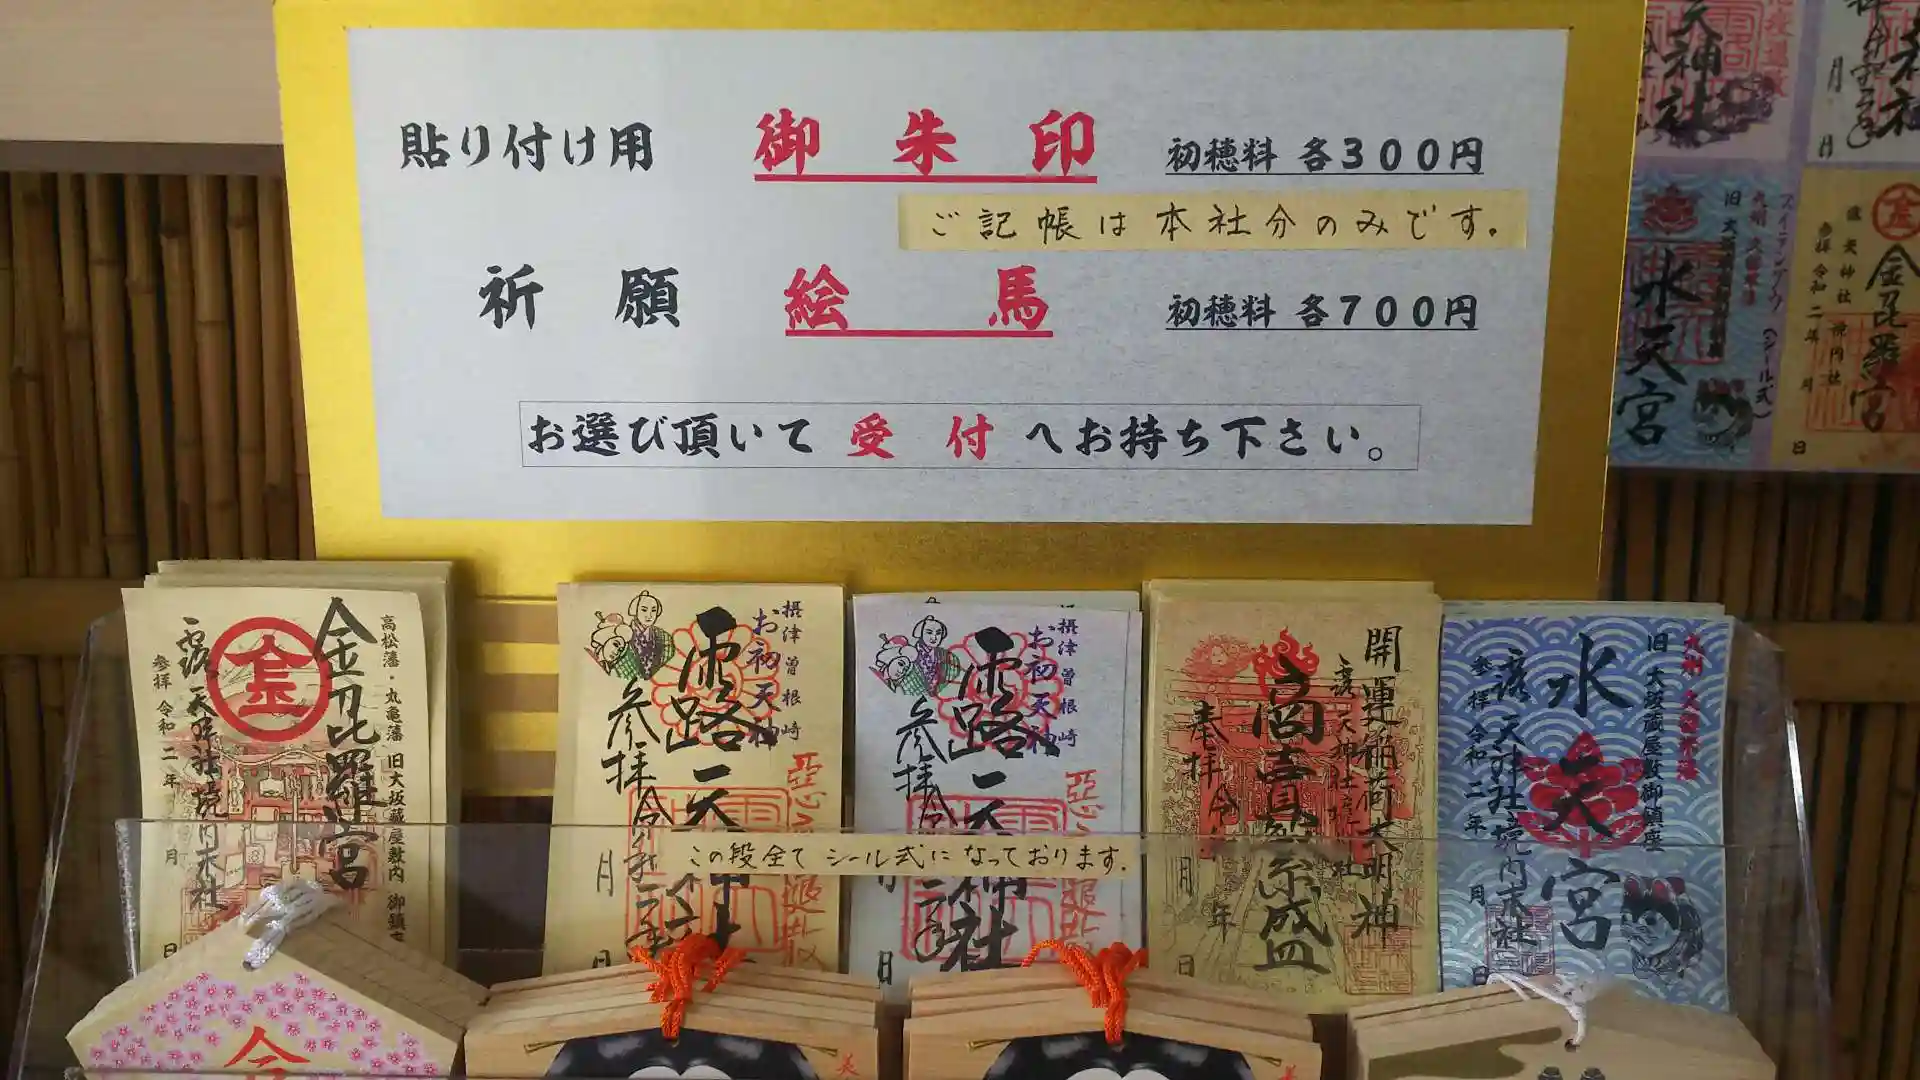 貼り付け用 御朱印 初穂料 各300円
ご記帳は本社分のみです。
祈願 絵馬 初穂料 各700円
お選び頂いて 受付 へお持ち下さい。
高松藩・丸亀藩 旧大坂蔵屋敷内
金毘羅宮
露 天神社境内末社
参拝 令和二年 月 日
摂津曽根崎
お初天神
露 天神社
参拝
月 日
摂津曽根崎
お初天神
露 天神社
参拝
月 日
この段全てシール式になっております。
開運稲荷大明神
商売繁盛
奉拝
月 日
九州 久留米藩
旧大坂蔵屋敷御鎮座
水天宮
露 天神社境内末社
参拝 令和二年 月 日
天神社
月 日
旧大
水天宮
(シール式)
金毘羅宮
露天神社
参拝 令和二年 月 日
令
美
美